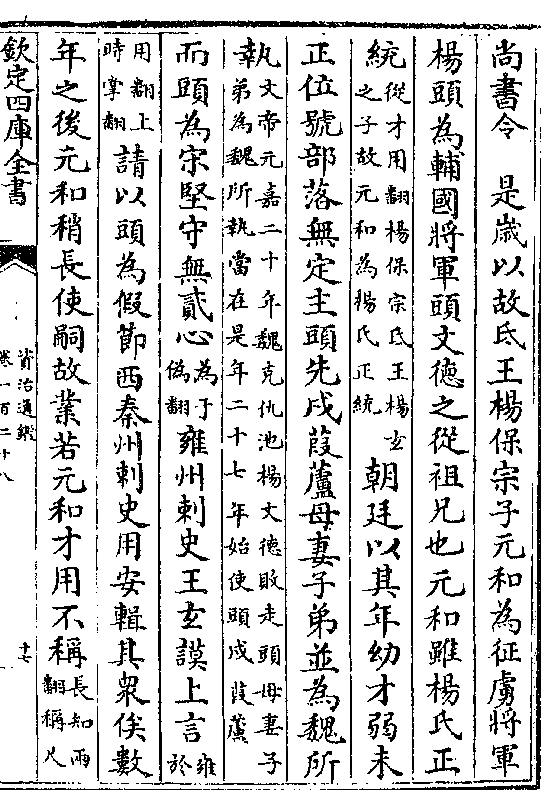 尚書令　是歲以故氐王楊保宗子元和為征虜將軍
楊頭為輔國將軍頭文德之從祖兄也元和雖楊氏正
統從才用翻楊保宗氐王楊玄
之子故元和為楊氏正統朝廷以其年幼才弱未
正位號部落無定主頭先戍葭蘆母妻子弟並為魏所
執文帝元嘉二十年魏克仇池楊文德敗走頭母妻子
弟為魏所執當在是年二十七年始使頭戍葭蘆
而頭為宋堅守無貳心為于
偽翻雍州刺史王玄謨上言雍於
用翻上
時掌翻請以頭為假節西秦州刺史用安輯其衆俟數
年之後元和稍長使嗣故業若元和才用不稱長知兩
翻稱尺
欽定四庫全書
資治通鑑
卷一百二十八
十七